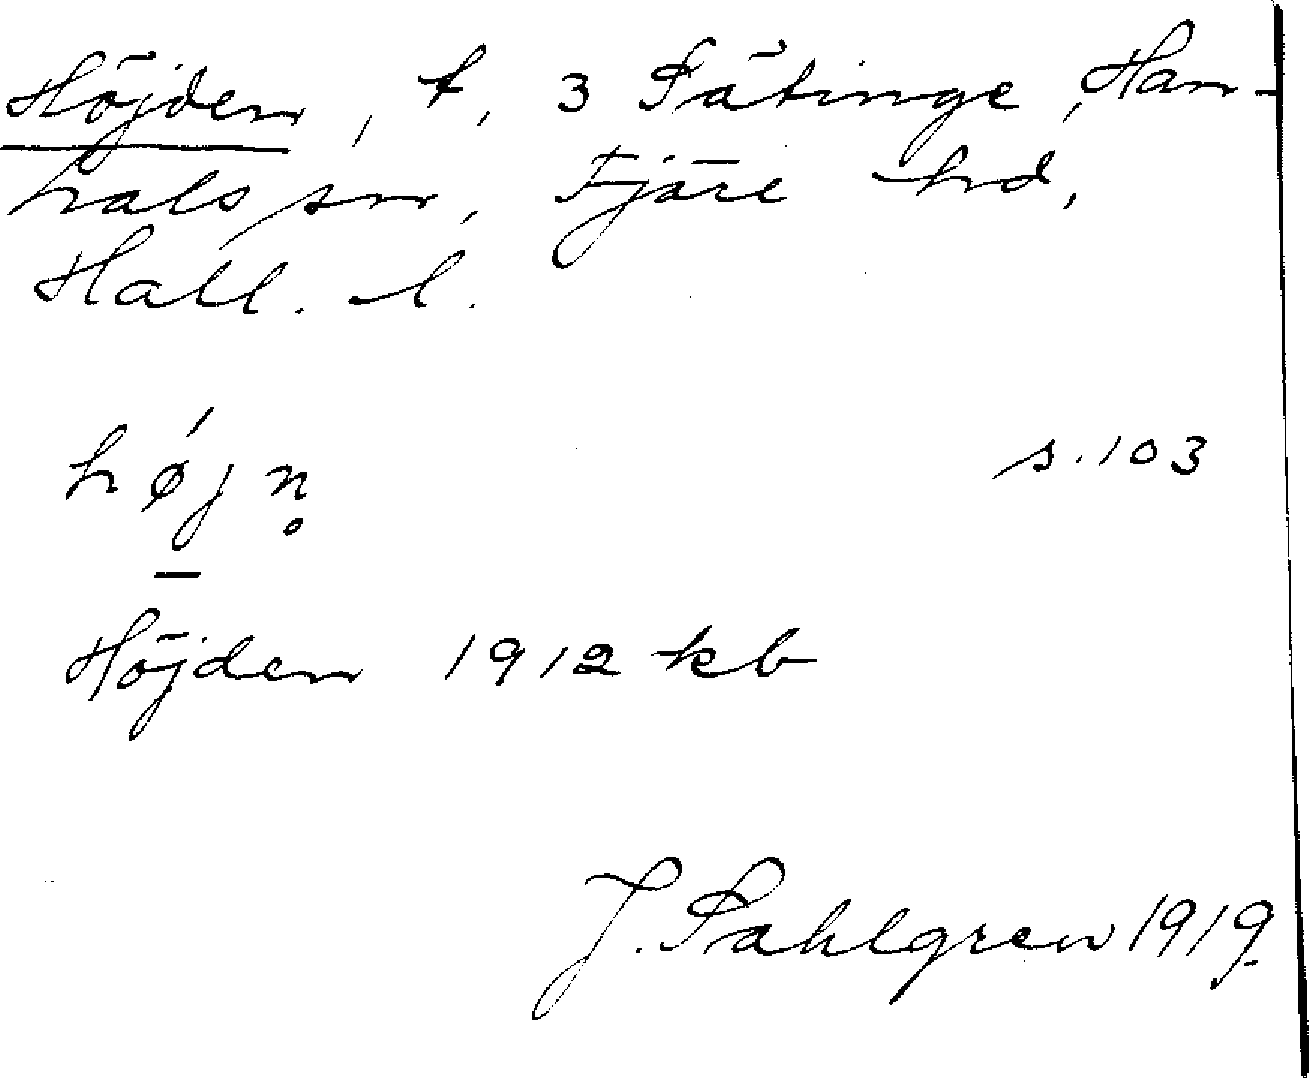 Höjden, t, 3 Sätinge, Han-
hals sn, Fjäre hd,
Hall. l.
hǿjn̥ s.103
Höjden 1912 kb
J. Sahlgren 1919